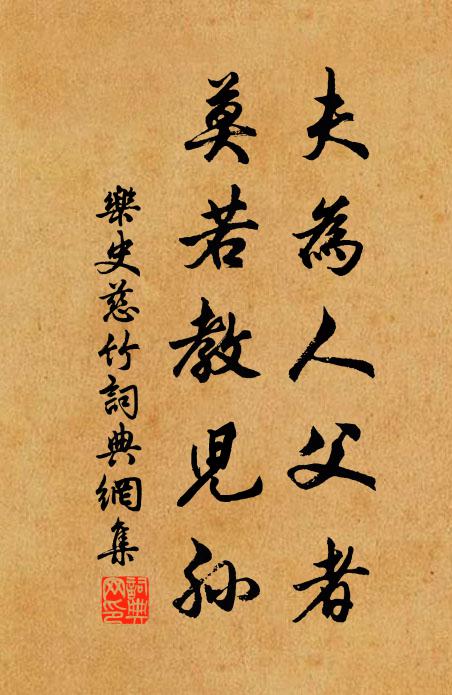 夫為人父者
莫若教兒孫
樂史慈竹詞典網集
詞典
网印